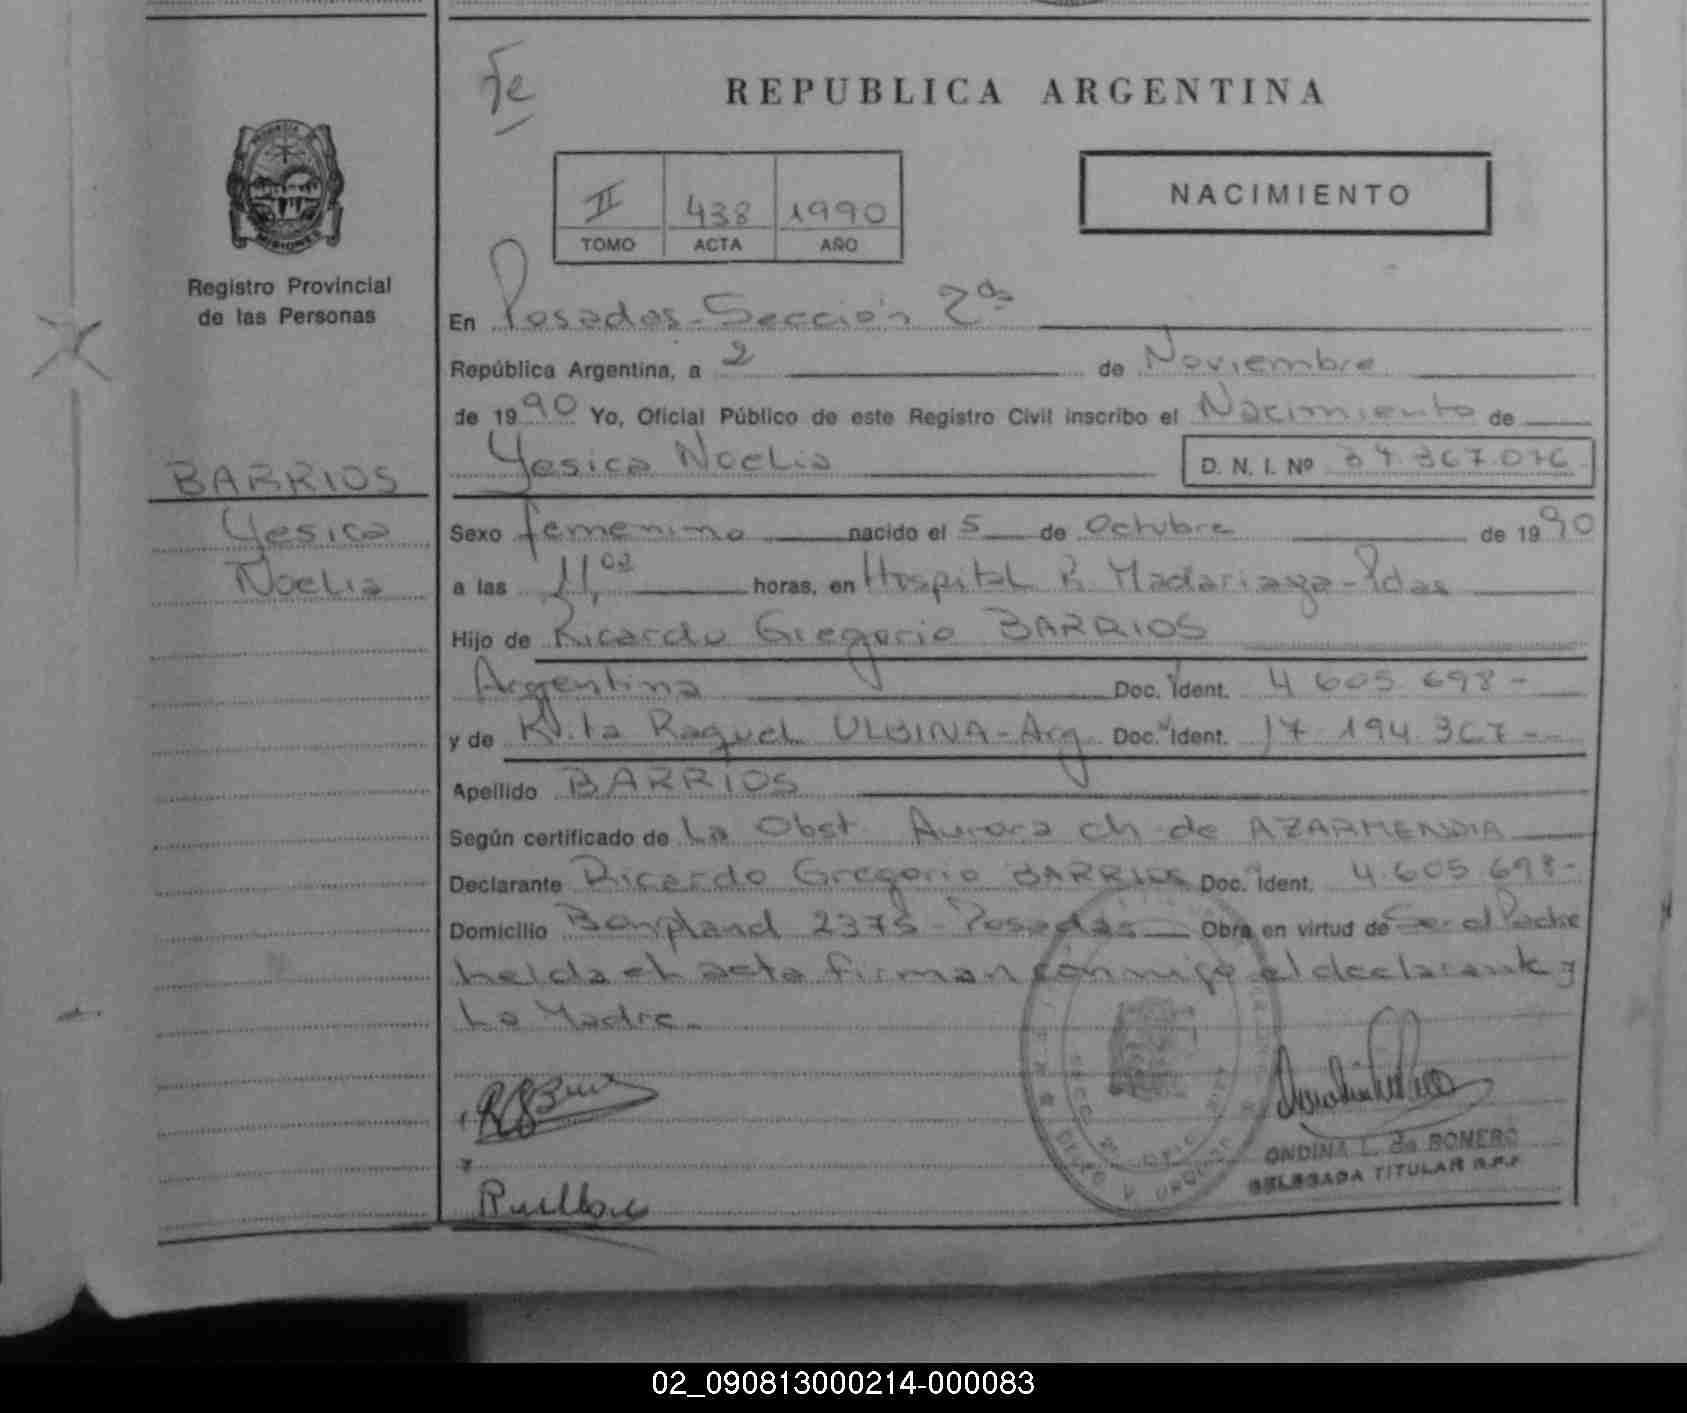 Fe
REPUBLICA ARGENTINA
II 438 1990
TOMO ACTA AÑO
NACIMIENTO
MISIONES
Registro Provincial
de las Personas
En Posadas-Sección 2da
República Argentina, a 2 de Noviembre
de 1990 Yo, Oficial Público de este Registro Civil inscribo el Nacimiento de
BARRIOS
Yesica
Noelia
Yesica Noelia D. N. I. Nº
Sexo femenino nacido el 5 de Octubre de 1990
a las 11,02 horas, en Hospital R. Madariaga-Pdas
Hijo de Ricardo Gregorio BARRIOS
Argentina Doc. Ident. 4 605 698-
y de Rita Raquel ULBINA-Arg Doc. Ident. 17 194 367--
Apellido BARRIOS
Según certificado de La Obst. Aurora ch de AZARMENDIA
Declarante Ricardo Gregorio BARRIOS Doc. Ident. 4.605 698-
Domicilio Bonpland 2375 - Posadas Obra en virtud de Ser el Padre
helda el acta firman conmigo el declarante y
La Madre.
ONDINA L. de ROMERO
DELEGADA TITULAR R.P.P
02_090813000214-000083